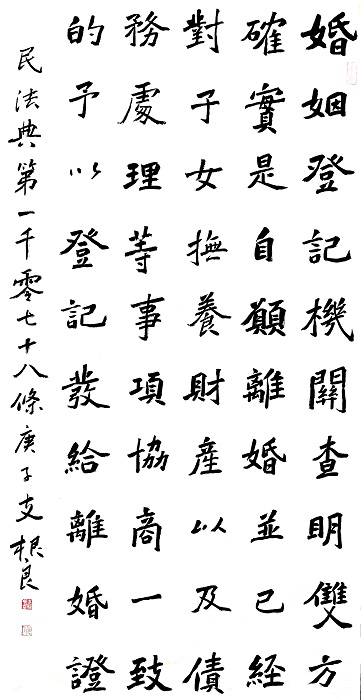 婚姻登記機關查明雙方
確實是自願離婚並已經
對子女撫養財產以及債
務處理等事項協商一致
的予以登記發給離婚證
民法典第一千零七十八條庚子支根良